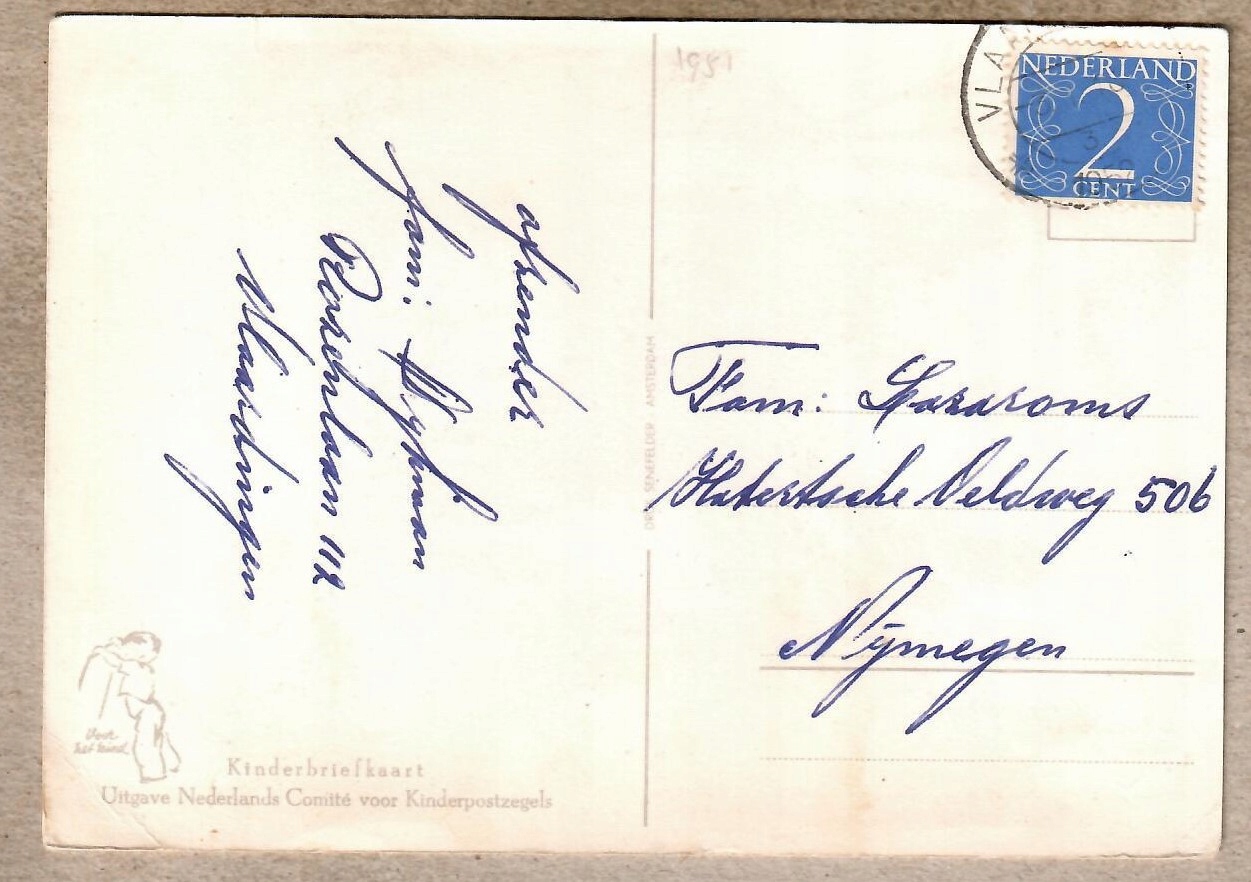 afzender
Fam: Nyman
Rozenlaan 112
Vlaardingen
1951
VLA
NEDERLAND
2
CENT
SENEFELDER AMSTERDAM
Fam:
Hatertsche Veldweg 506
Nijmegen
Voor
het kind
Kinderbriefkaart
Uitgave Nederlands Comité voor Kinderpostzegels